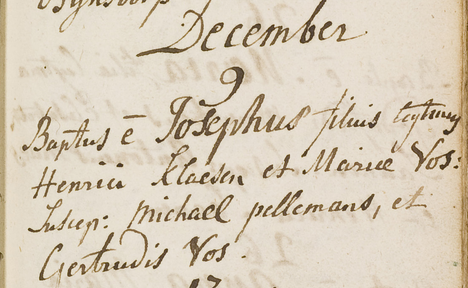 December
9
Baptus ē Josephus filius legtmus
Henrici Klaesen et Mariæ Vos:
Suscep: Michael pellemans, et
Gertrudis Vos.
17